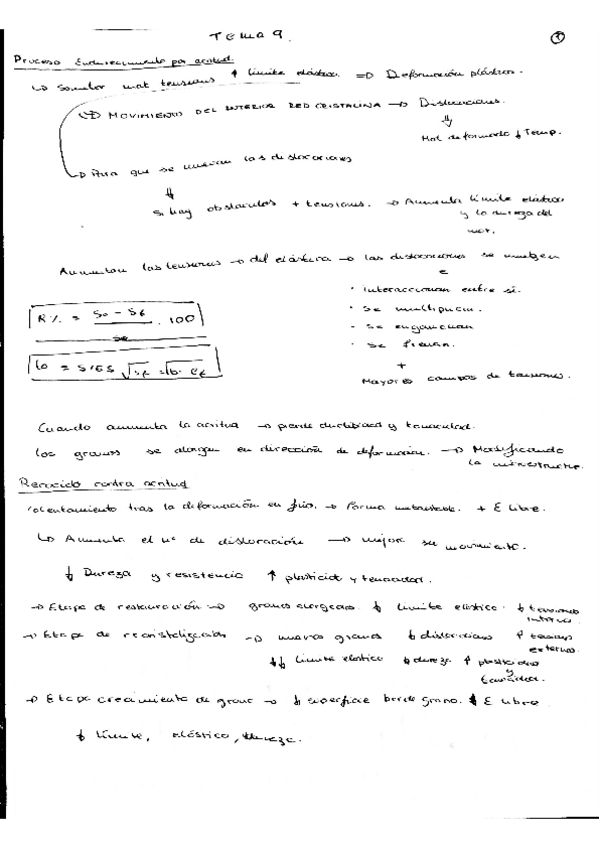 TEMA 9.
1
Proceso Endurecimiento por acritud.
↳ Someter mat tensiones ↑ límite elástico. => Deformación plástica.
↳ MOVIMIENTO DEL INTERIOR RED CRISTALINA → Dislocaciones.
⇓
Mat. deformado ↓ Temp.
↳ Para que se muevan las dislocaciones
⇓
Si hay obstáculos + tensiones. → Aumenta límite elástico
y la dureza del
mat.
Aumentan las tensiones → def elástica → las dislocaciones se mueven
e
· interaccionan entre sí.
· Se multiplican.
· Se enganchan
· Se frenan.
+
Mayores campos de tensiones.
R% = So - Sf / So . 100
lo = 5'65 √Sf = √b. ef
Cuando aumenta la acritud → pierde ductilidad y tenacidad.
los granos se alargan en dirección de deformación. → Modificando
la microestructura.
Recocido contra acritud
calentamiento tras la deformación en frío. → Forma metaestable. + E libre.
↳ Aumenta el nº de dislocación → mejor su movimiento.
↓ Dureza y resistencia ↑ plasticidad y tenacidad.
→ Etapa de restauración → granos alargados ↓ límite elástico. ↓ tensiones
internas
→ Etapa de recristalización → nuevos granos ↓ dislocaciones ↑ tensiones
externas.
↓↓ límite elástico ↓ dureza ↑ plasticidad
y
tenacidad.
→ Etapa crecimiento de grano → ↓ superficie borde grano. ↓ E libre
↓ límite, elástico, dureza.